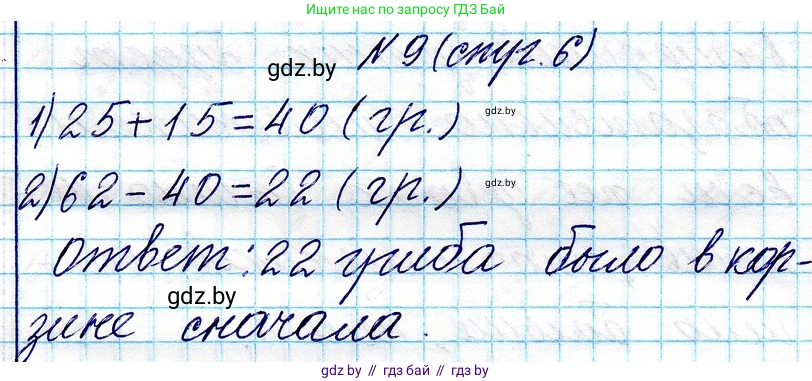 Ищите нас по запросу ГДЗ Бай
gdz.by
№ 9 (стр. 6)
1) 25 + 15 = 40 (гр.)
gdz.by
2) 62 - 40 = 22 (гр.)
gdz.by
Ответ: 22 гриба было в кор-
gdz.by
зине сначала.
gdz.by // гдз бай // gdz by